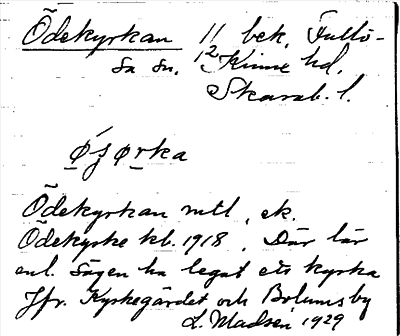 Ödekyrkan 1/2 bek. Fullö-
sa sn. Kinne hd.
Skarab. l.
ö́ʒørka
Ödekyrkan mtl, ek.
Ödekyrke kb. 1918. Där lär
enl. sägen ha legat ets kyrka
Jfr. Kyrkegärdet och Bolums by
L. Madsén 1929